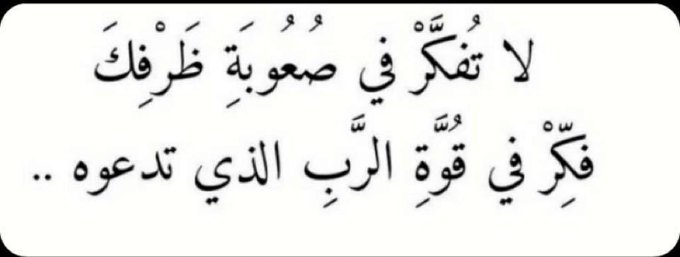 لا تُفكَّرْ في صُعُوبَةِ ظَرْفِكَ
فكِّرْ في قُوَّةِ الرَّبِ الذي تدعوه ..